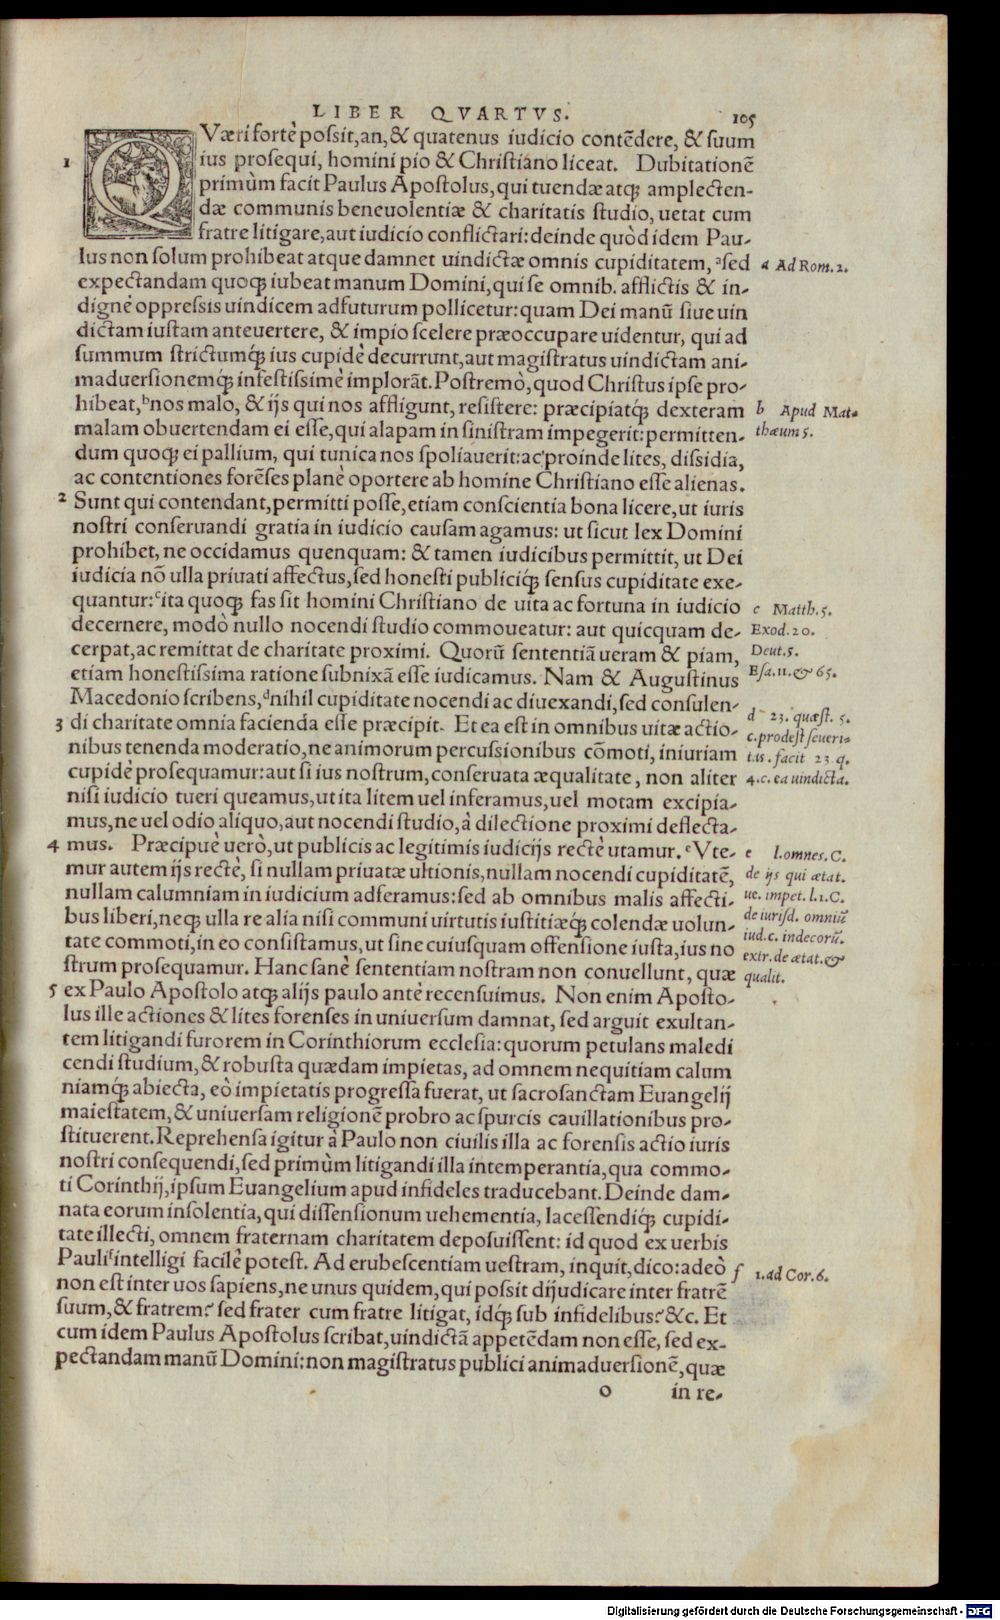 LIBER QVARTVS. 105
QVæri fortè possit, an, & quatenus iudicio contēdere, & suum
1 ius prosequi, homini pio & Christiano liceat. Dubitationē
primùm facit Paulus Apostolus, qui tuendæ atq; amplecten-
dæ communis beneuolentiæ & charitatis studio, uetat cum
fratre litigare, aut iudicio conflictari: deinde quòd idem Pau-
lus non solum prohibeat atque damnet uindictæ omnis cupiditatem, ᵃsed
a Ad Rom. 2.
expectandam quoq; iubeat manum Domini, qui se omnib. afflictis & in-
dignè oppressis uindicem adfuturum pollicetur: quam Dei manū siue uin
dictam iustam anteuertere, & impio scelere præoccupare uidentur, qui ad
summum strictumq́; ius cupidè decurrunt, aut magistratus uindictam ani-
maduersionemq́; infestissimè implorāt. Postremò, quod Christus ipse pro-
hibeat, ᵇnos malo, & ijs qui nos affligunt, resistere: præcipiatq́; dexteram
b Apud Mat-
malam obuertendam ei esse, qui alapam in sinistram impegerit: permitten-
thæum 5.
dum quoq; ei pallium, qui tunica nos spoliauerit: ac proinde lites, dissidia,
ac contentiones forēses planè oportere ab homine Christiano esse alienas.
2 Sunt qui contendant, permitti posse, etiam conscientia bona licere, ut iuris
nostri conseruandi gratia in iudicio causam agamus: ut sicut lex Domini
prohibet, ne occidamus quenquam: & tamen iudicibus permittit, ut Dei
iudicia nō ulla priuati affectus, sed honesti publiciq́; sensus cupiditate exe-
quantur: ᶜita quoq; fas sit homini Christiano de uita ac fortuna in iudicio
c Matth. 5.
decernere, modò nullo nocendi studio commoueatur: aut quicquam de-
Exod. 20.
cerpat, ac remittat de charitate proximi. Quorū sententiā ueram & piam,
Deut. 5.
etiam honestissima ratione subnixā esse iudicamus. Nam & Augustinus
Esa. 11. & 65.
Macedonio scribens, ᵈnihil cupiditate nocendi ac diuexandi, sed consulen-
d 23. quæst. 5.
3 di charitate omnia facienda esse præcipit. Et ea est in omnibus uitæ actio-
c. prodest seueri-
nibus tenenda moderatio, ne animorum percussionibus cōmoti, iniuriam
tas. facit 23 q.
cupidè prosequamur: aut si ius nostrum, conseruata æqualitate, non aliter
4. c. ea uindicta.
nisi iudicio tueri queamus, ut ita litem uel inferamus, uel motam excipia-
mus, ne uel odio aliquo, aut nocendi studio, à dilectione proximi deflecta-
4 mus. Præcipuè uerò, ut publicis ac legitimis iudicijs rectè utamur. ᵉVte-
e l. omnes. C.
mur autem ijs rectè, si nullam priuatæ ultionis, nullam nocendi cupiditatē,
de ijs qui ætat.
nullam calumniam in iudicium adferamus: sed ab omnibus malis affecti-
ue. impet. l. 1. C.
bus liberi, neq; ulla re alia nisi communi uirtutis iustitiæq́; colendæ uolun-
de iurisd. omniū
tate commoti, in eo consistamus, ut sine cuiusquam offensione iusta, ius no
iud. c. indecorū.
strum prosequamur. Hanc sanè sententiam nostram non conuellunt, quæ
extr. de ætat. &
qualit.
5 ex Paulo Apostolo atq; alijs paulo antè recensuimus. Non enim Aposto-
lus ille actiones & lites forenses in uniuersum damnat, sed arguit exultan-
tem litigandi furorem in Corinthiorum ecclesia: quorum petulans maledi
cendi studium, & robusta quædam impietas, ad omnem nequitiam calum
niamq́; abiecta, eò impietatis progressa fuerat, ut sacrosanctam Euangelij
maiestatem, & uniuersam religionē probro ac spurcis cauillationibus pro-
stituerent. Reprehensa igitur à Paulo non ciuilis illa ac forensis actio iuris
nostri consequendi, sed primùm litigandi illa intemperantia, qua commo-
ti Corinthij, ipsum Euangelium apud infideles traducebant. Deinde dam-
nata eorum insolentia, qui dissensionum uehementia, lacessendiq́; cupidi-
tate illecti, omnem fraternam charitatem deposuissent: id quod ex uerbis
Pauli ᶠintelligi facilè potest. Ad erubescentiam uestram, inquit, dico: adeò
f 1. ad Cor. 6.
non est inter uos sapiens, ne unus quidem, qui possit dijudicare inter fratrē
suum, & fratrem? sed frater cum fratre litigat, idq́; sub infidelibus? &c. Et
cum idem Paulus Apostolus scribat, uindictā appetēdam non esse, sed ex-
pectandam manū Domini: non magistratus publici animaduersionē, quæ
o in re-
Digitalisierung gefördert durch die Deutsche Forschungsgemeinschaft - DFG